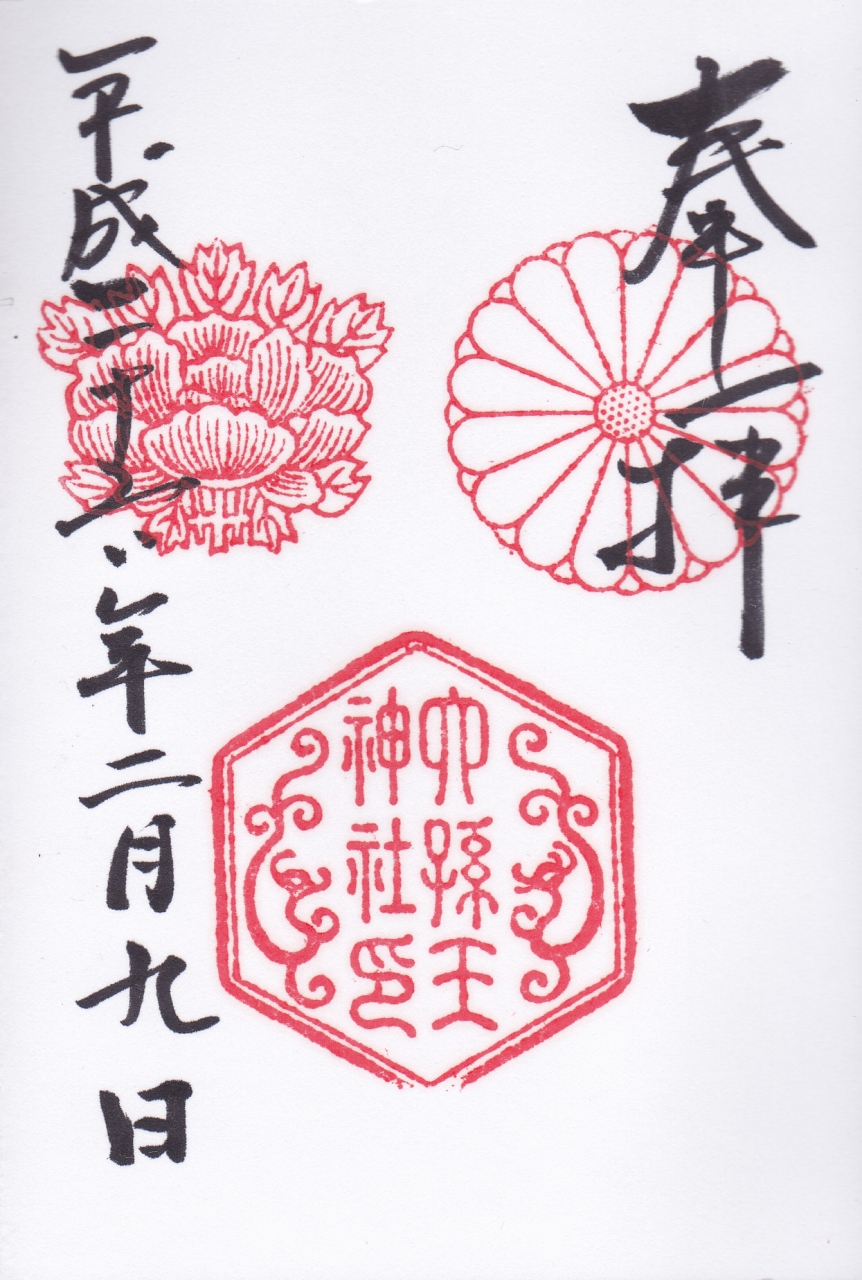 奉拝
六孫王
神社印
平成二十六年二月九日